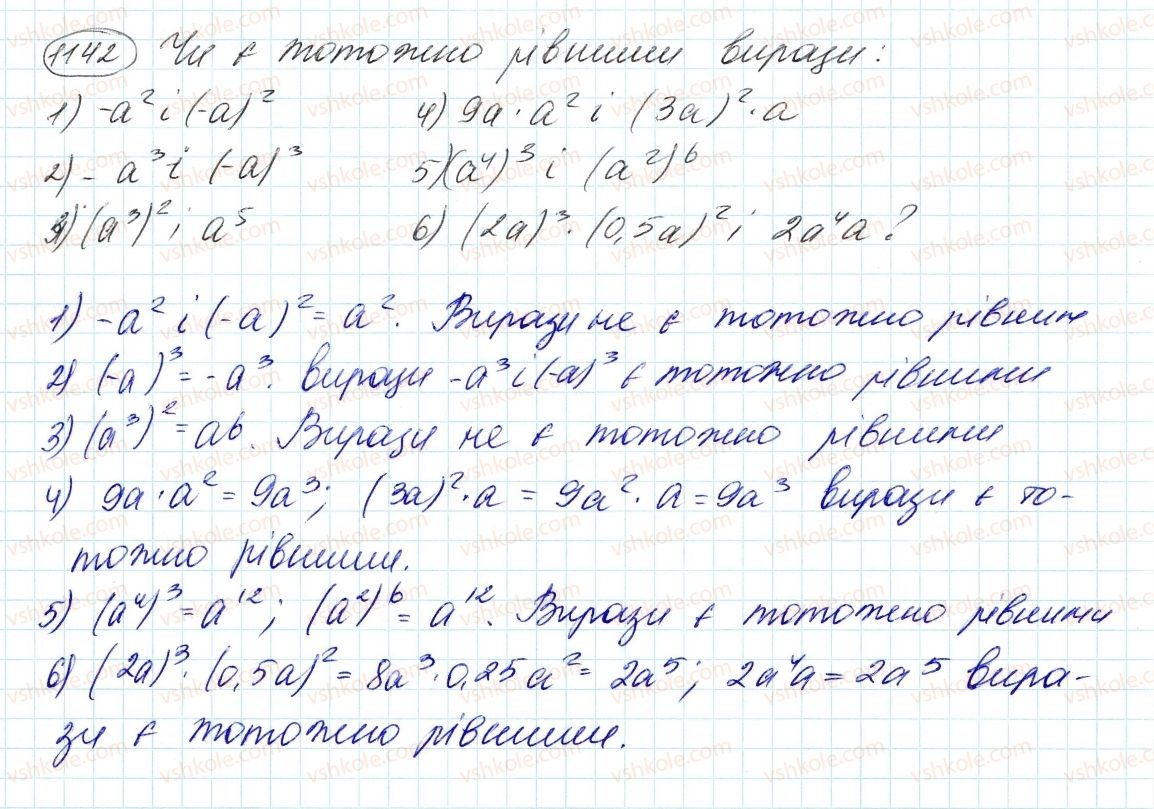 1142 Чи є тотожно рівними вирази:
1) -a² і (-a)² 4) 9a · a² і (3a)² · a
2) -a³ і (-a)³ 5) (a⁴)³ і (a²)⁶
3) (a³)² і a⁵ 6) (2a)³ · (0,5a)² і 2a⁴a?
1) -a² і (-a)² = a². Вирази не є тотожно рівними
2) (-a)³ = -a³. вирази -a³ і (-a)³ є тотожно рівними
3) (a³)² = a6. Вирази не є тотожно рівними
4) 9a · a² = 9a³; (3a)² · a = 9a² · a = 9a³ вирази є то-
тожно рівними.
5) (a⁴)³ = a¹²; (a²)⁶ = a¹². Вирази є тотожно рівними
6) (2a)³ · (0,5a)² = 8a³ · 0,25a² = 2a⁵; 2a⁴a = 2a⁵ вира-
зи є тотожно рівними.